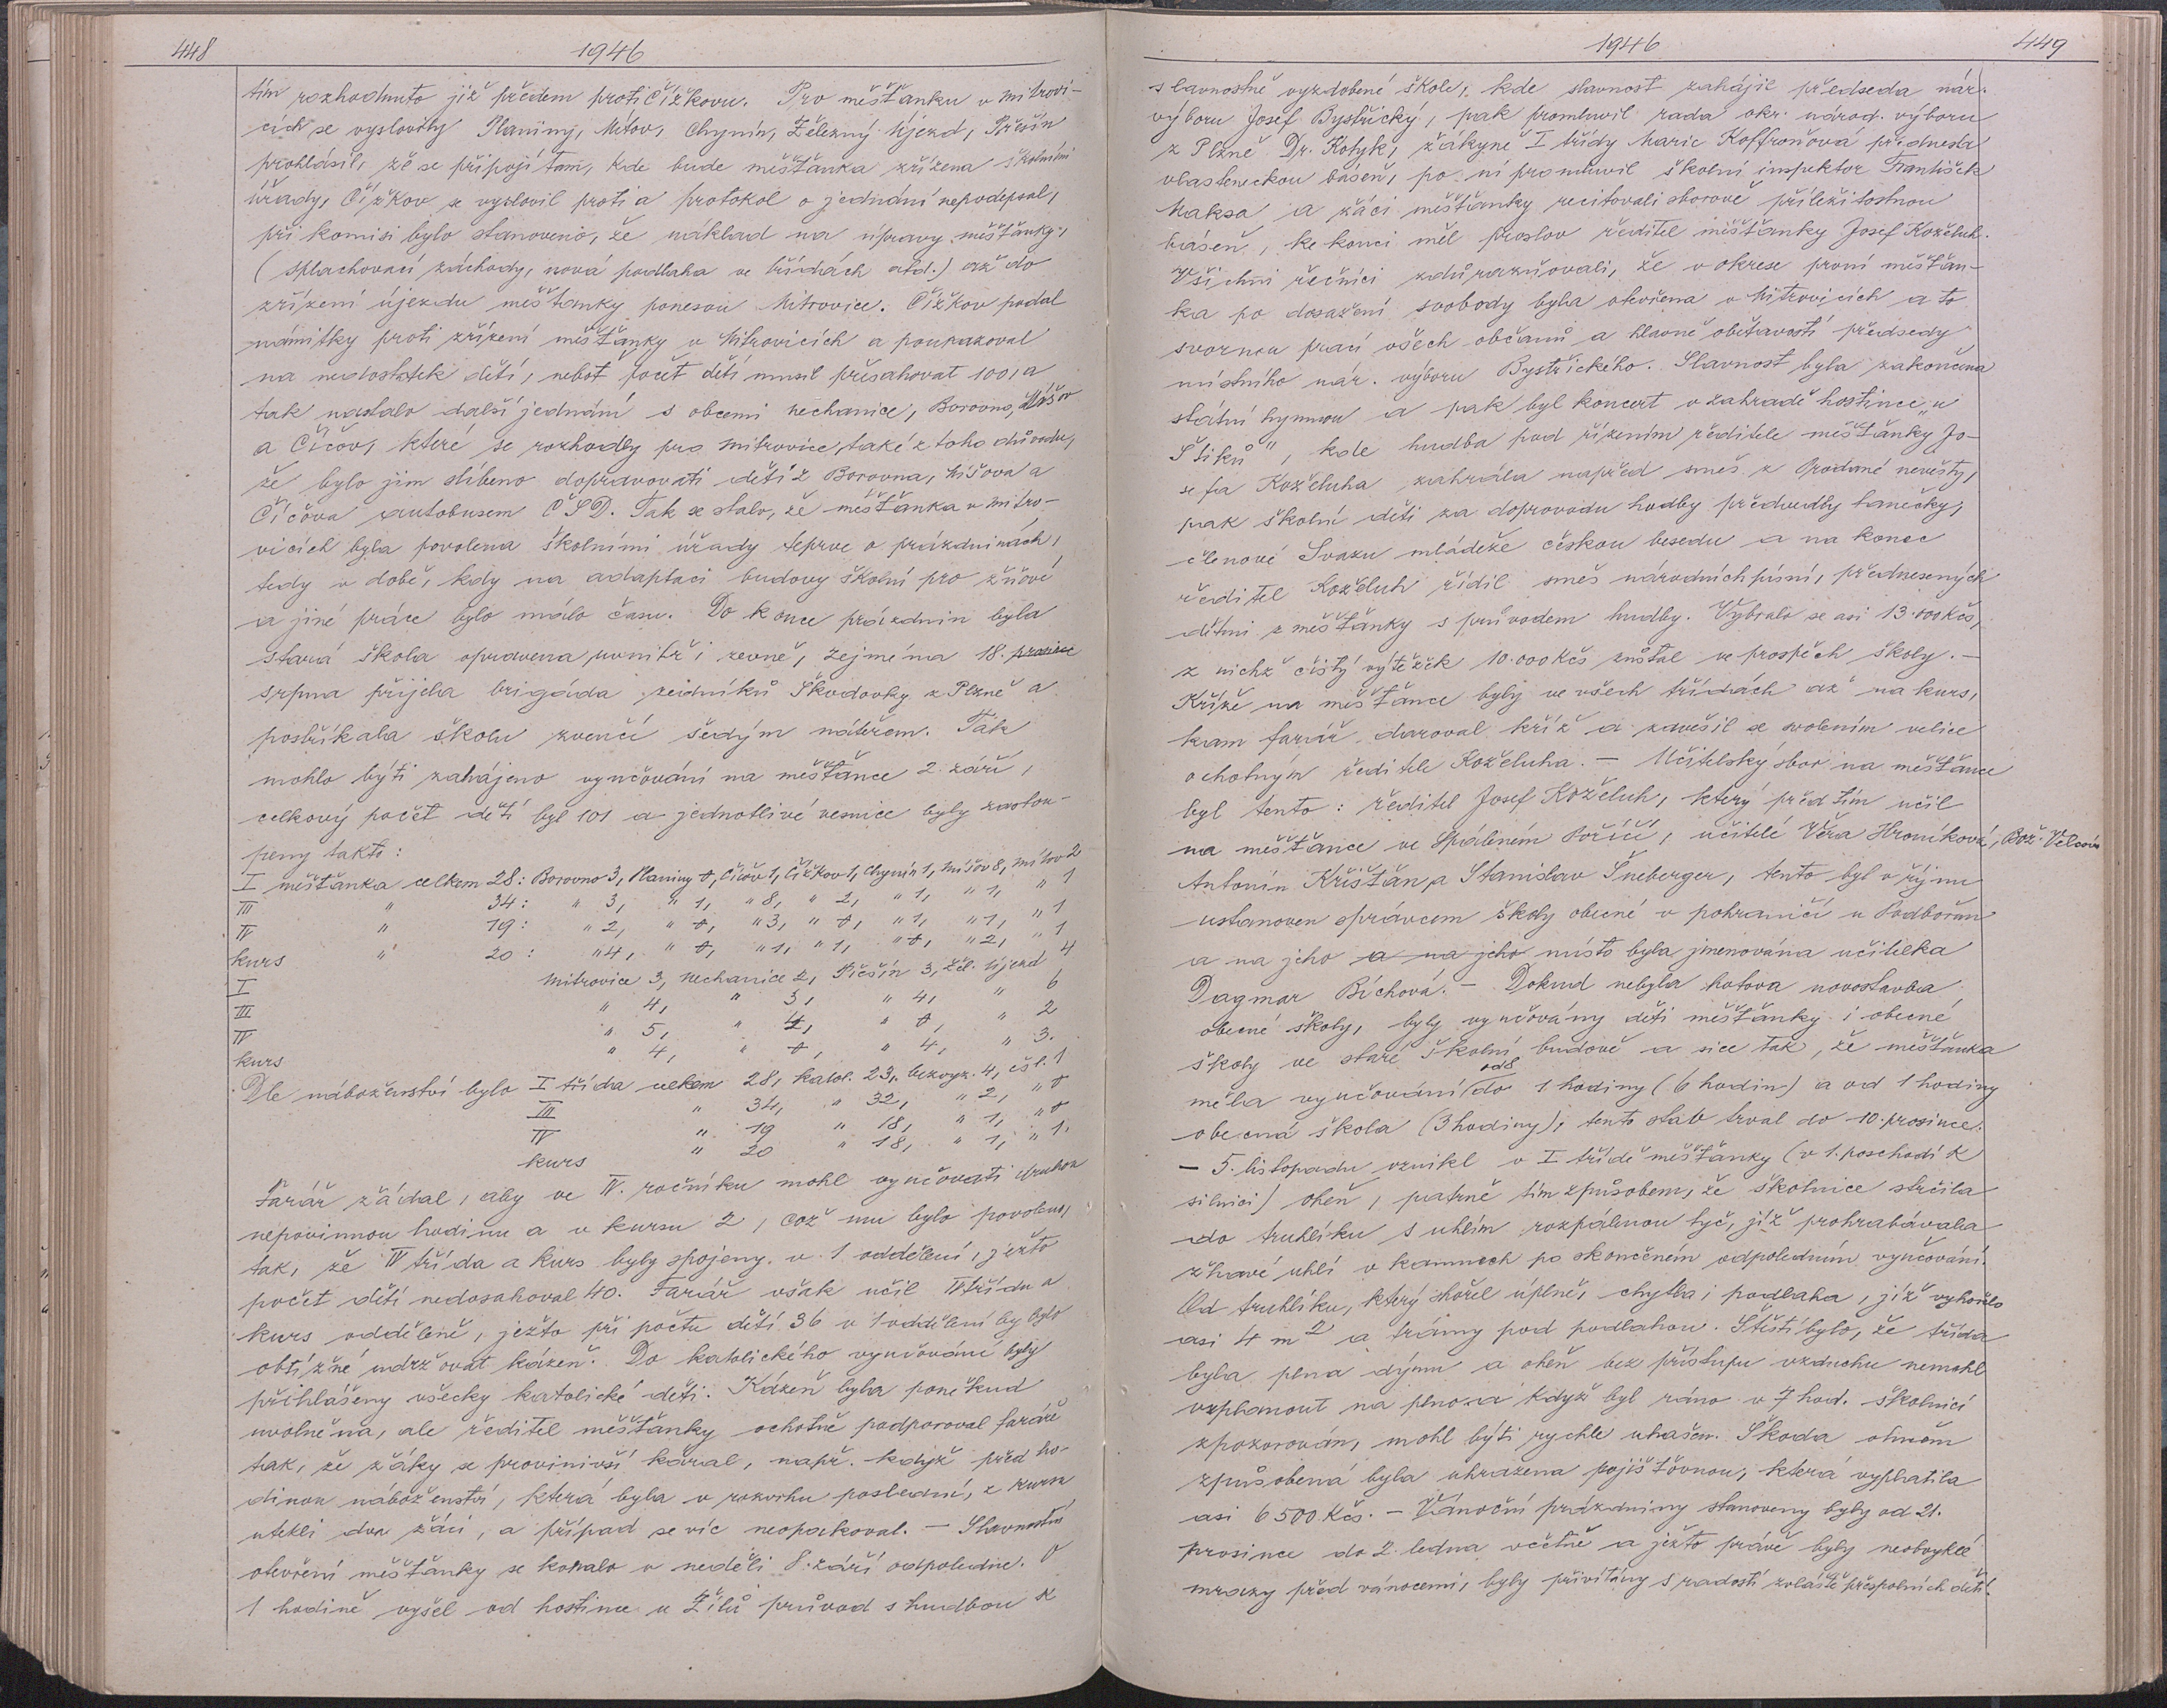 448
1946
tím rozhodnuto již předem proti Čížkovu. Pro měšťanku v Mitrovi-
cích se vyslovily Planiny, Mítov, Chynín, Železný Újezd, Přešín
prohlásil, že se připojí tam, kde bude měšťanka zřízena školními
úřady, Čížkov se vyslovil proti a protokol o jednání nepodepsal,
při komisi bylo stanoveno, že náklad na úpravy měšťanky,
(splachovací záchody, nová podlaha ve třídách atd.) až do
zřízení újezdu měšťanky ponesou Mitrovice. Čížkov podal
námitky proti zřízení měšťanky v Mitrovicích a poukazoval
na nedostatek dětí, neboť počet dětí musil přesahovat 100, a
tak nastalo další jednání s obcemi Nechanice, Borovno, Míšov
a Číčov, které se rozhodly pro Mitrovice, také z toho důvodu,
že bylo jim slíbeno dopravovati děti z Borovna, Míšova a
Číčova autobusem ČSD. Tak se stalo, že měšťanka v Mitro-
vicích byla povolena školními úřady teprve o prázdninách,
tedy v době, kdy na adaptaci budovy školní pro žňové
a jiné práce bylo málo času. Do konce prázdnin byla
stará škola opravena uvnitř i zevně, zejména 18. prosince
srpna přijela brigáda zedníků Škodovky z Plzně a
postříkala školu zvenčí šedým nátěrem. Tak
mohlo býti zahájeno vyučování na měšťance 2. září,
celkový počet dětí byl 101 a jednotlivé vesnice byly zastou-
peny takto:
I měšťanka celkem 28: Borovno 3, Planiny 0, Číčov 1, Čížkov 1, Chynín 1, Míšov 8, Mítov 2
III " 34: " 3, " 1, " 8, " 2, " 1, " 1, " 1
IV " 19: " 2, " 0, " 3, " 0, " 1, " 1, " 1
kurs " 20: " 4, " 0, " 1, " 1, " 0, " 2, " 1
I Mitrovice 3, Nechanice 2, Přešín 3, Žel. Újezd 4
III " 4, " 3, " 4, " 6
IV " 5, " " 0, " 2
kurs " 4, " 0, " 4, " 3.
Dle náboženství bylo I třída celkem 28, katol. 23, bezvyz. 4, čsl. 1
III " 34, " 32, " 2, " 0
IV " 19 " 18, " 1, " 0
kurs " 20 " 18, " 1, " 1.
Farář žádal, aby ve IV. ročníku mohl vyučovati druhou
nepovinnou hodinu a v kursu 2, což mu bylo povoleno,
tak, že IV třída a kurs byly spojeny v 1 oddělení, ježto
počet dětí nedosahoval 40. Farář však učil IV třídu a
kurs odděleně, ježto při počtu dětí 36 v 1 oddělení by bylo
obtížné udržovat kázeň. Do katolického vyučování byly
přihlášeny všecky katolické děti. Kázeň byla poněkud
uvolněna, ale ředitel měšťanky ochotně podporoval faráře
tak, že žáky se provinivší káral, např. když před ho-
dinou náboženství, která byla v rozvrhu poslední, z kursu
utekli dva žáci, a případ se víc neopakoval. – Slavnostní
otevření měšťanky se konalo v neděli 8. září odpoledne. O
1 hodině vyšel od hostince u Žílů průvod s hudbou k
1946
449
slavnostně vyzdobené škole, kde slavnost zahájil předseda nár.
výboru Josef Bystřický, pak promluvil rada okr. národ. výboru
z Plzně Dr. Kotyk, žákyně I třídy Marie Koffroňová přednesla
vlasteneckou báseň, po ní promluvil školní inspektor František
Maksa a žáci měšťanky recitovali sborově příležitostnou
báseň, ke konci měl proslov ředitel měšťanky Josef Koželuh.
Všichni řečníci zdůrazňovali, že v okrese první měšťan-
ka po dosažení svobody byla otevřena v Mitrovicích a to
svornou prací všech občanů a hlavně obětavostí předsedy
místního nár. výboru Bystřického. Slavnost byla zakončena
státní hymnou a pak byl koncert v zahradě hostince „u
Šliků", kde hudba pod řízením ředitele měšťanky Jo-
sefa Koželuha zahrála napřed směs z Prodané nevěsty,
pak školní děti za doprovodu hudby předvedly tanečky,
členové Svazu mládeže českou besedu a na konec
ředitel Koželuh řídil směs národních písní, přednesených
dětmi z měšťanky s průvodem hudby. Vybralo se asi 13.000 Kčs,
z nichž čistý výtěžek 10.000 Kčs zůstal ve prospěch školy. –
Kříže na měšťance byly ve všech třídách až na kurs,
kam farář daroval kříž a zavěsil se svolením velice
ochotným ředitele Koželuha. – Učitelský sbor na měšťance
byl tento: ředitel Josef Koželuh, který před tím učil
na měšťance ve Spáleném Poříčí, učitelé Věra Hroníková, Bož. Velcová
Antonín Křišťan, a Stanislav Šneberger, tento byl v říjnu
ustanoven správcem školy obecné v pohraničí u Podbořan
a na jeho a na jeho místo byla jmenována učitelka
Dagmar Bíchová. – Dokud nebyla hotova novostavba
obecné školy, byly vyučovány děti měšťanky i obecné
školy ve staré školní budově a sice tak, že měšťanka
měla vyučování od 8 do 1 hodiny (6 hodin) a od 1 hodiny
obecná škola (3 hodiny), tento stav trval do 10. prosince.
– 5. listopadu vznikl v I třídě měšťanky (v 1. poschodí k
silnici) oheň, patrně tím způsobem, že školnice strčila
do truhlíku s uhlím rozpálenou tyč, jíž prohrabávala
žhavé uhlí v kamnech po skončeném odpoledním vyučování.
Od truhlíku, který shořel úplně, chytla i podlaha, jíž vyhořelo
asi 4 m2 a trámy pod podlahou. Štěstí bylo, že třída
byla plna dýmu a oheň bez přístupu vzduchu nemohl
vzplanout na plno a když byl ráno v 7 hod. školnicí
zpozorován, mohl býti rychle uhašen. Škoda ohněm
způsobená byla uhrazena pojišťovnou, která vyplatila
asi 6500 Kčs. – Vánoční prázdniny stanoveny byly od 21.
prosince do 2. ledna včetně a ježto právě byly neobvyklé
mrazy před vánocemi, byly přivítány s radostí zvláště přespolních dětí.